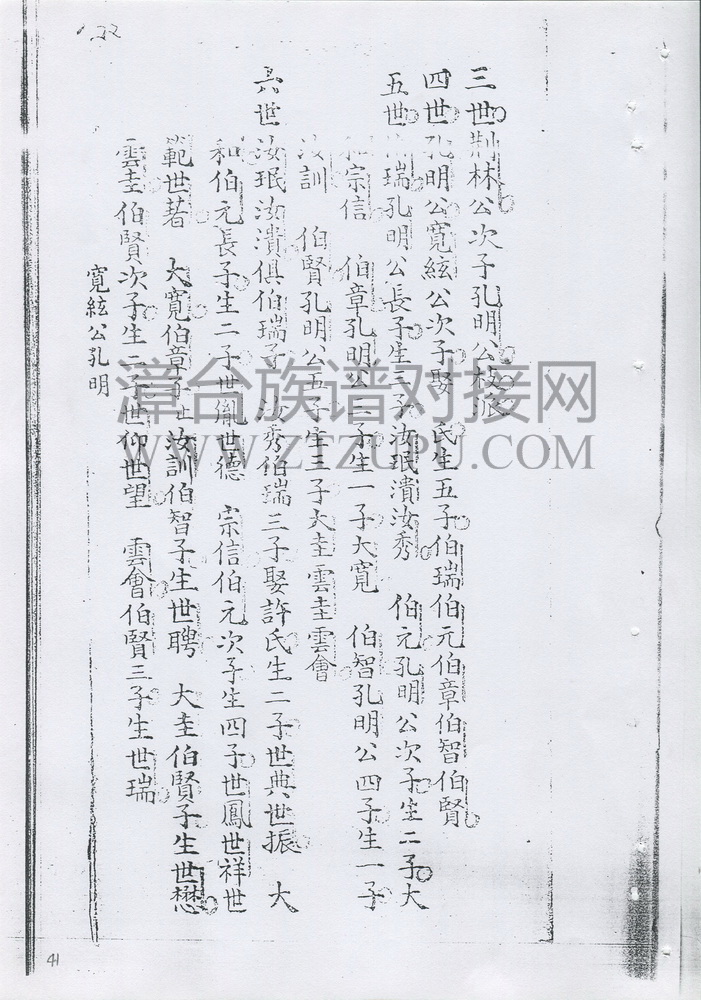 三世荆林公次子孔明公枝派
四世孔明公寬絃公次子娶 氏生五子伯瑞伯元伯章伯智伯賢
五世 瑞孔明公長子生三子汝珉潰汝秀 伯元孔明公次子生二子大
和宗信 伯章孔明公三子生一子大寬 伯智孔明公四子生一子
汝訓 伯賢孔明公五子生三子大圭雲圭雲會
六世汝珉汝潰俱伯瑞子 汝秀伯瑞三子娶許氏生二子世典世振 大
和伯元長子生二子世胤世德 宗信伯元次子生四子世鳳世祥世
範世著 大寬伯章子止 汝訓伯智子生世聘 大圭伯賢子生世懋
雲圭伯賢次子生二子世仰世望 雲會伯賢三子生世瑞
寬絃公孔明
41
漳台族谱对接网
WWW.ZTZUPU.COM